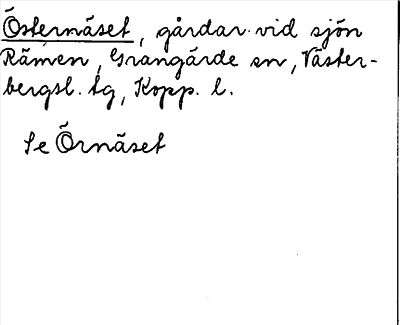 Östernäset, gårdar vid sjön
Rämen, Grangärde sn, Väster-
bergsl. tg, Kopp. l.
Se Örnäset